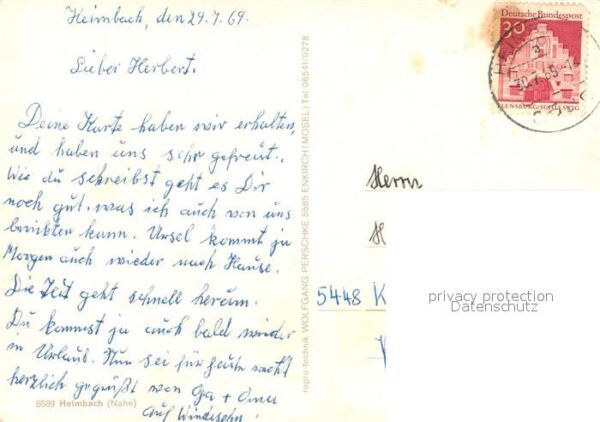 Heimbach, den 29.7.69.
Lieber Herbert.
Deine Karte haben wir erhalten,
und haben uns sehr gefreut.
Wie du schreibst geht es Dir
noch gut, was ich auch von uns
berichten kann. Ursel kommt ja
Morgen auch wieder nach Hause.
Die Zeit geht schnell herum.
Du kommst ja auch bald wieder
in Urlaub. Nun sei für heute recht
herzlich gegrüßt von Opa + Oma
Auf Wiedersehn!
6589 Heimbach (Nahe)
repro-technik WOLFGANG PERSCHKE 5585 ENKIRCH (MOSEL) Tel. 06541/9276
Deutsche Bundespost
30
FLENSBURG/SCHLESWIG
30.7.69
Herrn
H
5448 K
privacy protection
Datenschutz